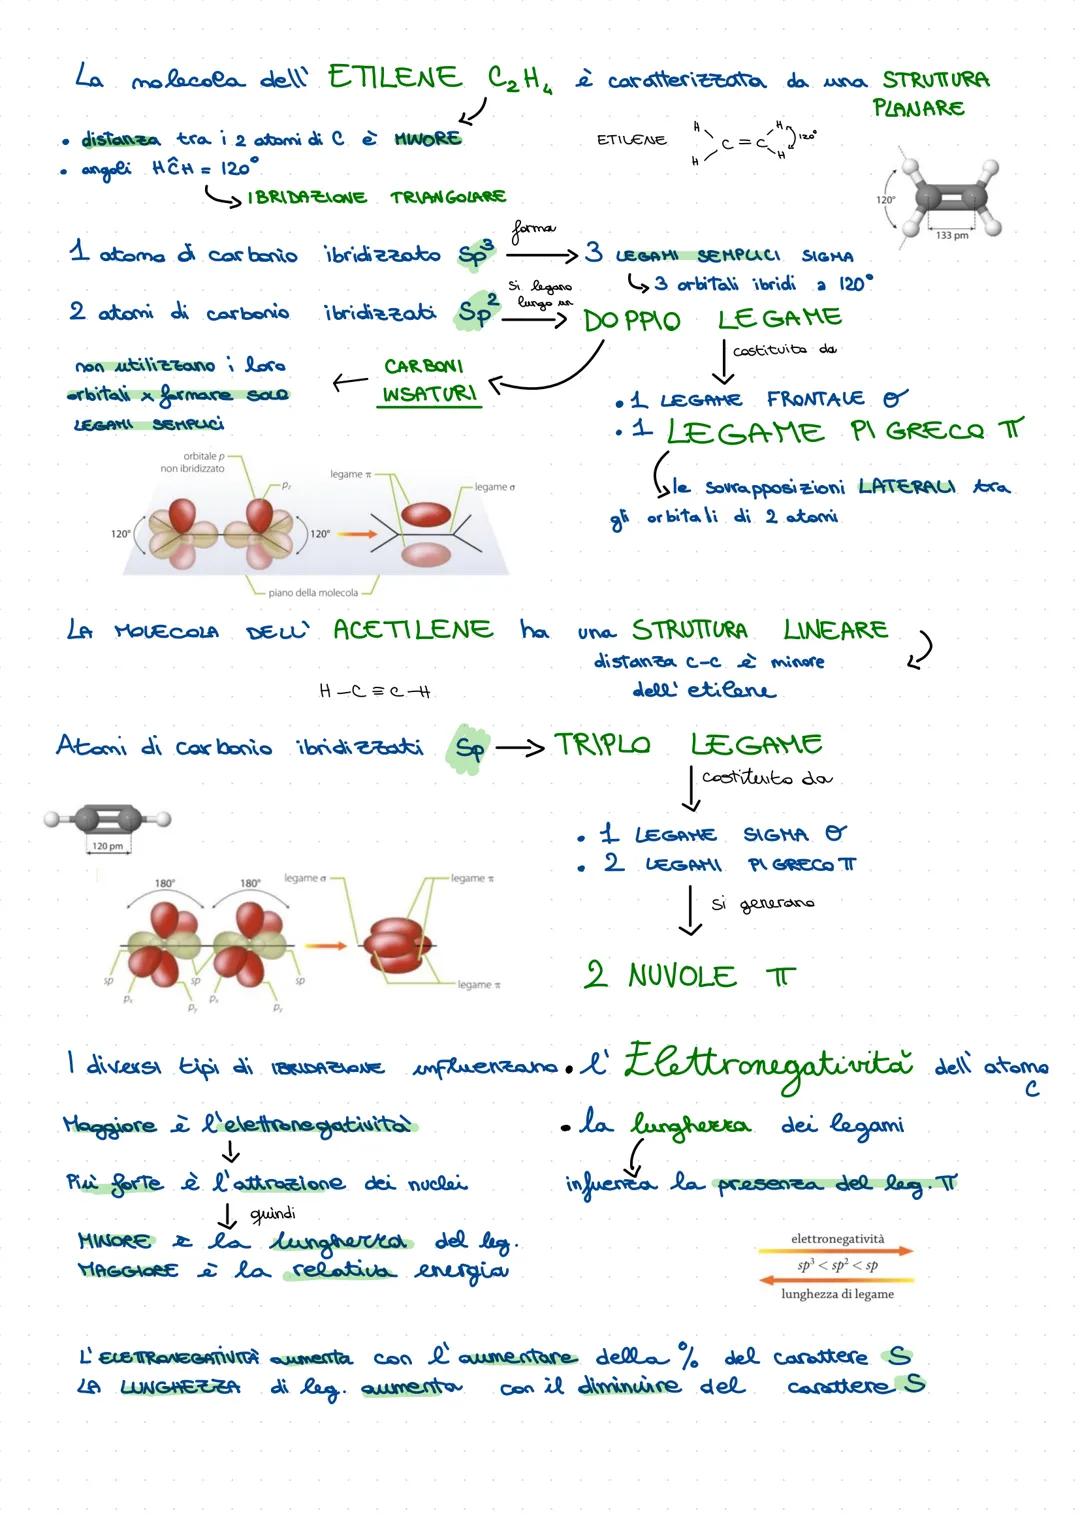 La molecola dell' ETILENE C₂H₄ è caratterizzata da una STRUTTURA
PLANARE
• distanza tra i 2 atomi di C è MINORE
• angoli HĈH = 120°
IBRIDAZIONE TRIANGOLARE
ETILENE
H H
C=C 120°
H H
120°
133 pm
1 atomo di carbonio ibridizzato Sp³ forma 3 LEGAMI SEMPLICI SIGMA
3 orbitali ibridi a 120°
2 atomi di carbonio ibridizzati Sp² si legano lungo un DOPPIO LEGAME
costituito da
CARBONI
INSATURI
non utilizzano i loro
orbitali x formare SOLO
LEGAMI SEMPLICI
• 1 LEGAME FRONTALE σ
• 1 LEGAME PI GRECO π
le sovrapposizioni LATERALI tra
gli orbitali di 2 atomi
orbitale p
non ibridizzato
legame π
legame σ
120°
120°
piano della molecola
LA MOLECOLA DELL' ACETILENE ha una STRUTTURA LINEARE
distanza c-c è minore
dell' etilene
H-C≡C-H
Atomi di carbonio ibridizzati Sp → TRIPLO LEGAME
costituito da
120 pm
• 1 LEGAME SIGMA σ
• 2 LEGAMI PI GRECO π
si generano
2 NUVOLE π
180°
180°
legame σ
legame π
sp
sp
sp
pₓ
pᵧ
pₓ
pᵧ
legame π
I diversi tipi di IBRIDAZIONE influenzano • l' Elettronegatività dell' atomo
C
Maggiore è l'elettronegatività
• la lunghezza dei legami
Più forte è l'attrazione dei nuclei
infuenza la presenza del leg. π
quindi
MINORE è la lunghezza del leg.
MAGGIORE è la relativa energia
elettronegatività
sp³ < sp² < sp
lunghezza di legame
L' ELETTRONEGATIVITÀ aumenta con l'aumentare della % del carattere S
LA LUNGHEZZA di leg. aumenta con il diminuire del carattere S